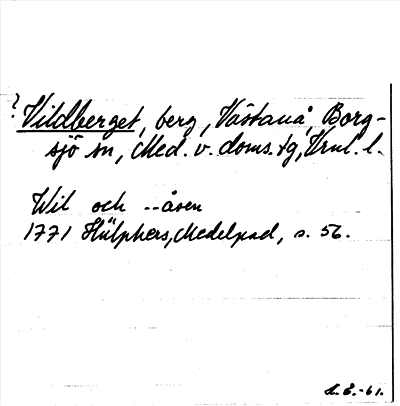 ? Vildberget, berg, Västanå, Borg-
sjö sn, Med. v. doms. tg, Vrnl. l.
Wil och --åsen
1771 Hülphers, Medelpad, s. 56.
L. E. -61.